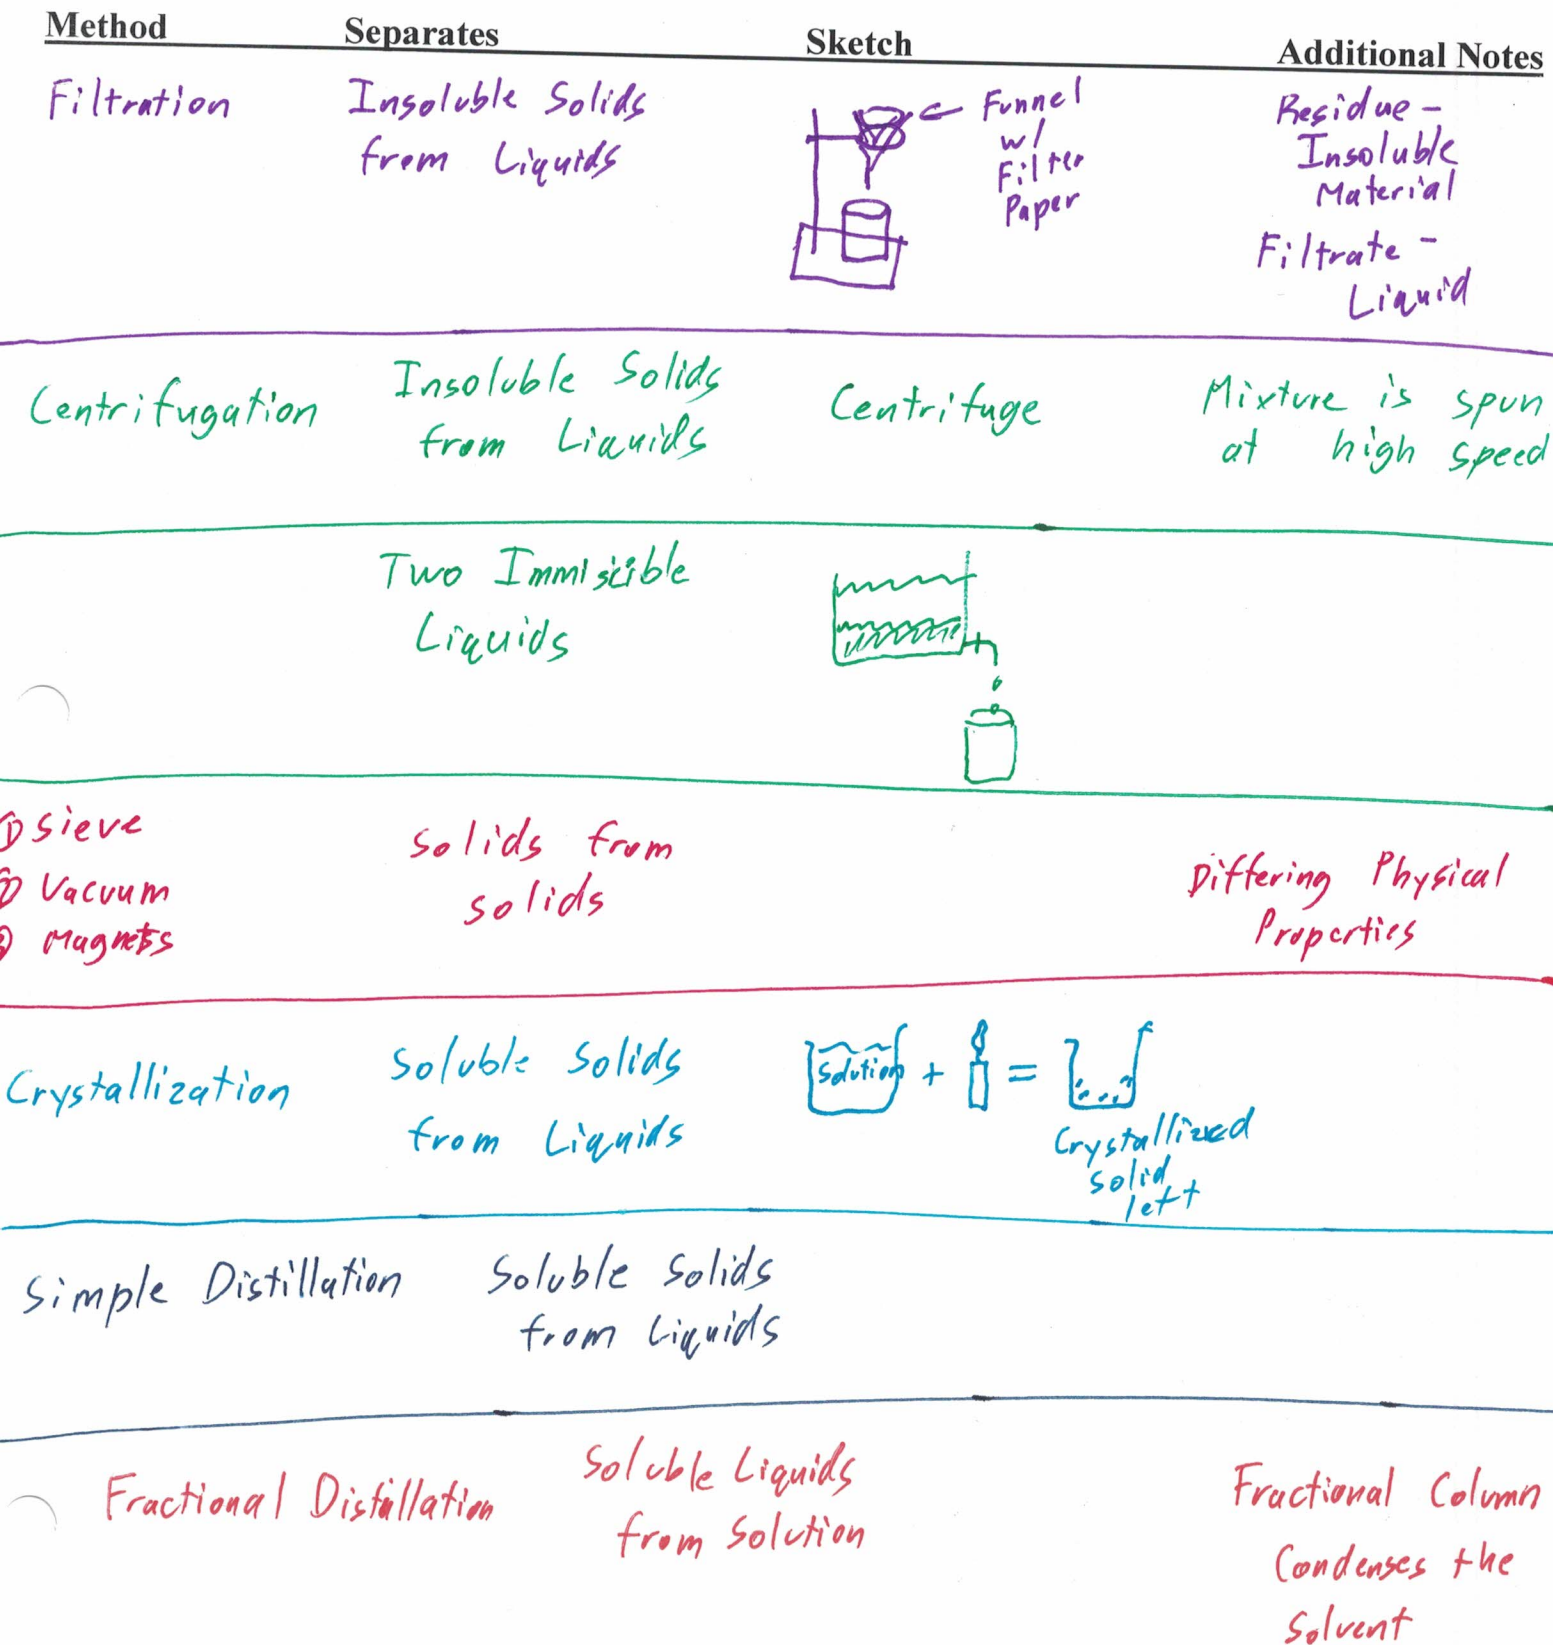 Method Separates Sketch Additional Notes
Filtration
Insoluble Solids
from Liquids
Funnel
w/
Filter
Paper
Residue -
Insoluble
Material
Filtrate -
Liquid
Centrifugation
Insoluble Solids
from Liquids
Centrifuge
Mixture is spun
at high speed
Two Immiscible
Liquids
① Sieve
② Vacuum
③ Magnets
Solids from
solids
Differing Physical
Properties
Crystallization
Soluble Solids
from Liquids
Solution + =
Crystallized
solid
left
Simple Distillation
Soluble Solids
from Liquids
Fractional Distillation
Soluble Liquids
from Solution
Fractional Column
Condenses the
Solvent